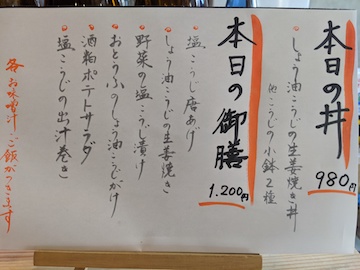 本日の丼
980円
・しょう油こうじの生姜焼き丼
他こうじの小鉢2種
本日の御膳
1.200円
・塩こうじ唐あげ
・しょう油こうじの生姜焼き
・野菜の塩こうじ漬け
・おとうふのしょう油こうじがけ
・酒粕ポテトサラダ
・塩こうじの出汁巻き
各お味噌汁・ご飯がつきます